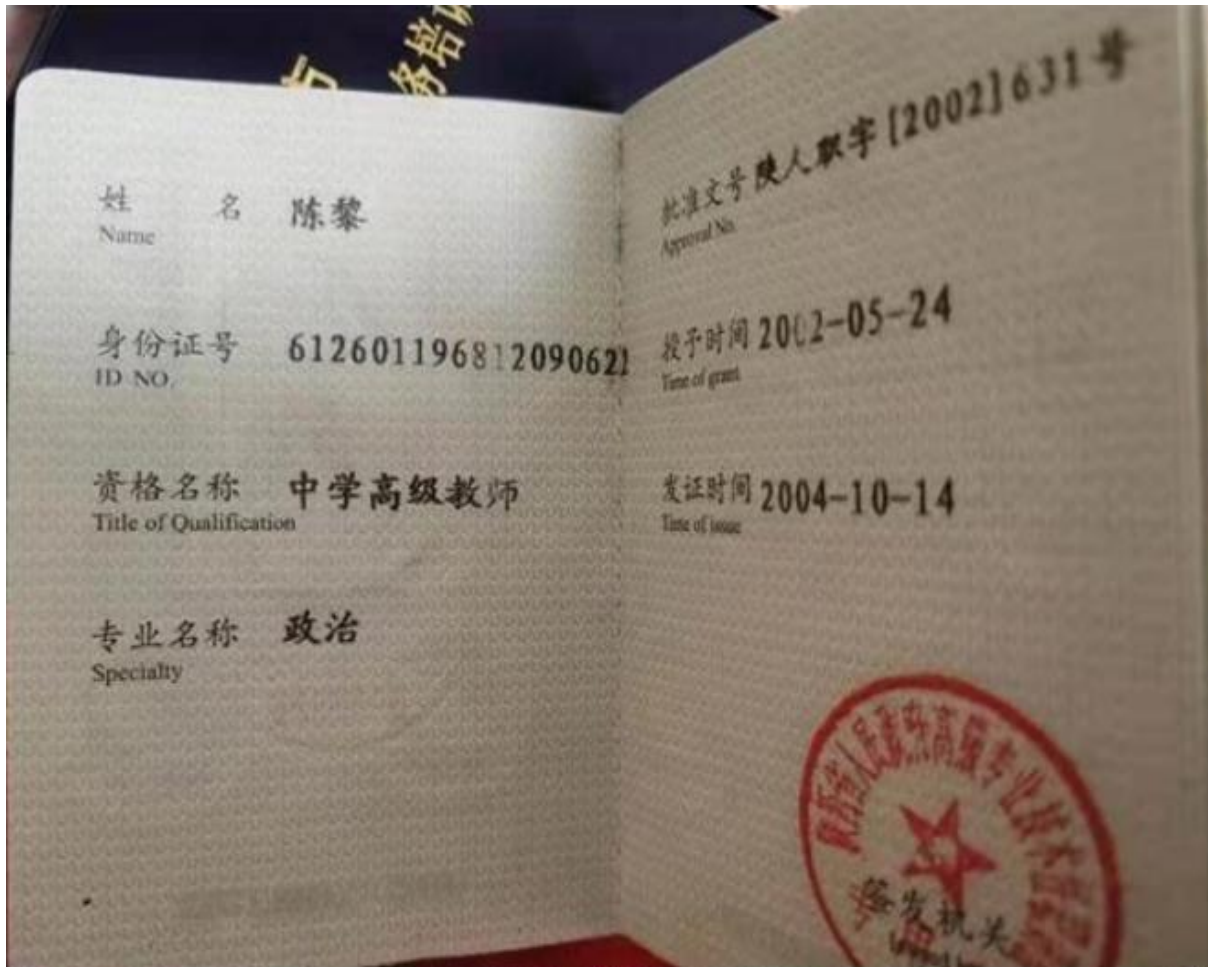 务培训
姓名 陈黎
Name
身份证号 612601196812090621
ID NO.
资格名称 中学高级教师
Title of Qualification
专业名称 政治
Specialty
批准文号 陕人职字[2002]631号
Approval No.
授予时间 2002-05-24
Time of grant
发证时间 2004-10-14
Time of issue
签发机关